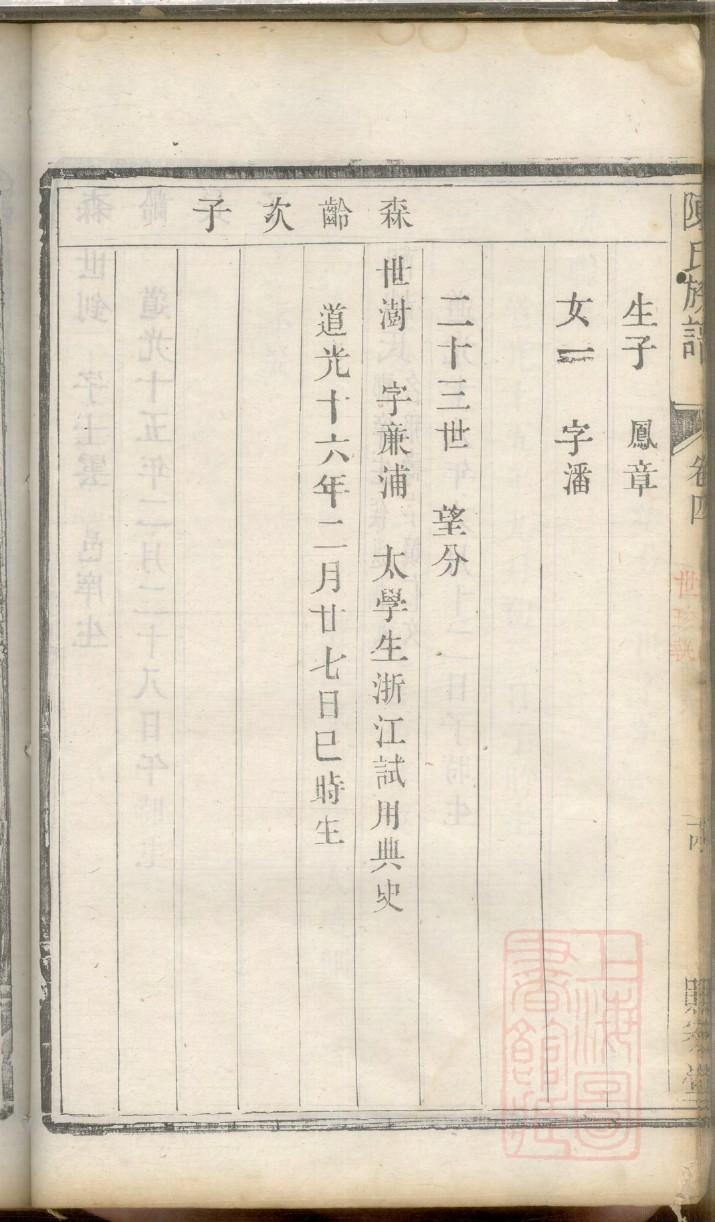 陳氏族譜 卷四
生子 鳳章
女一 字潘
二十三世 望分
森齡次子
世澍 字蓮浦 太學生浙江試用典史
道光十六年二月廿七日巳時生
上海圖書館藏